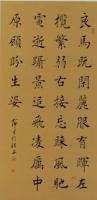 良馬既閑麗服有暉左
攬繁弱右接忘歸風馳
電逝躡景追飛凌厲中
原顧盼生姿